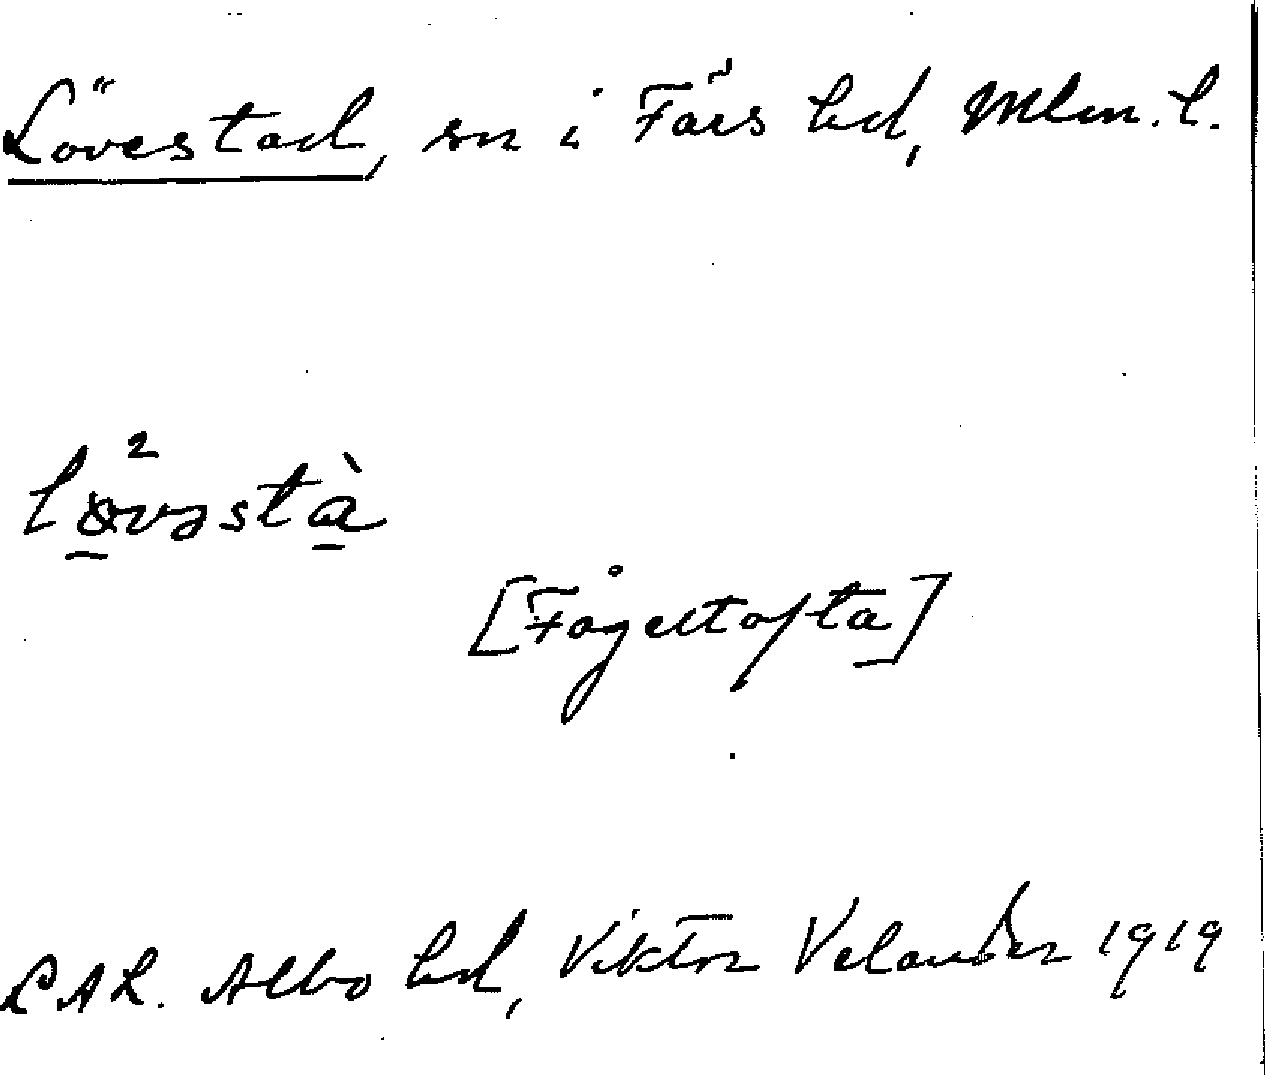 Lövestad, sn i Färs hd, Mlm. l.
2
løvəstà
[Fågeltofta]
LAL. Albo hd, Viktor Velander 1919